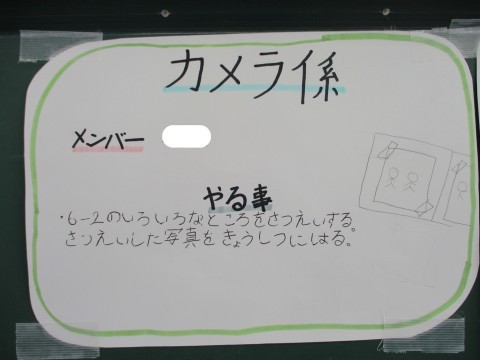 カメラ係
メンバー
やる事
・6-2のいろいろなところをさつえいする
さつえいした写真をきょうしつにはる。